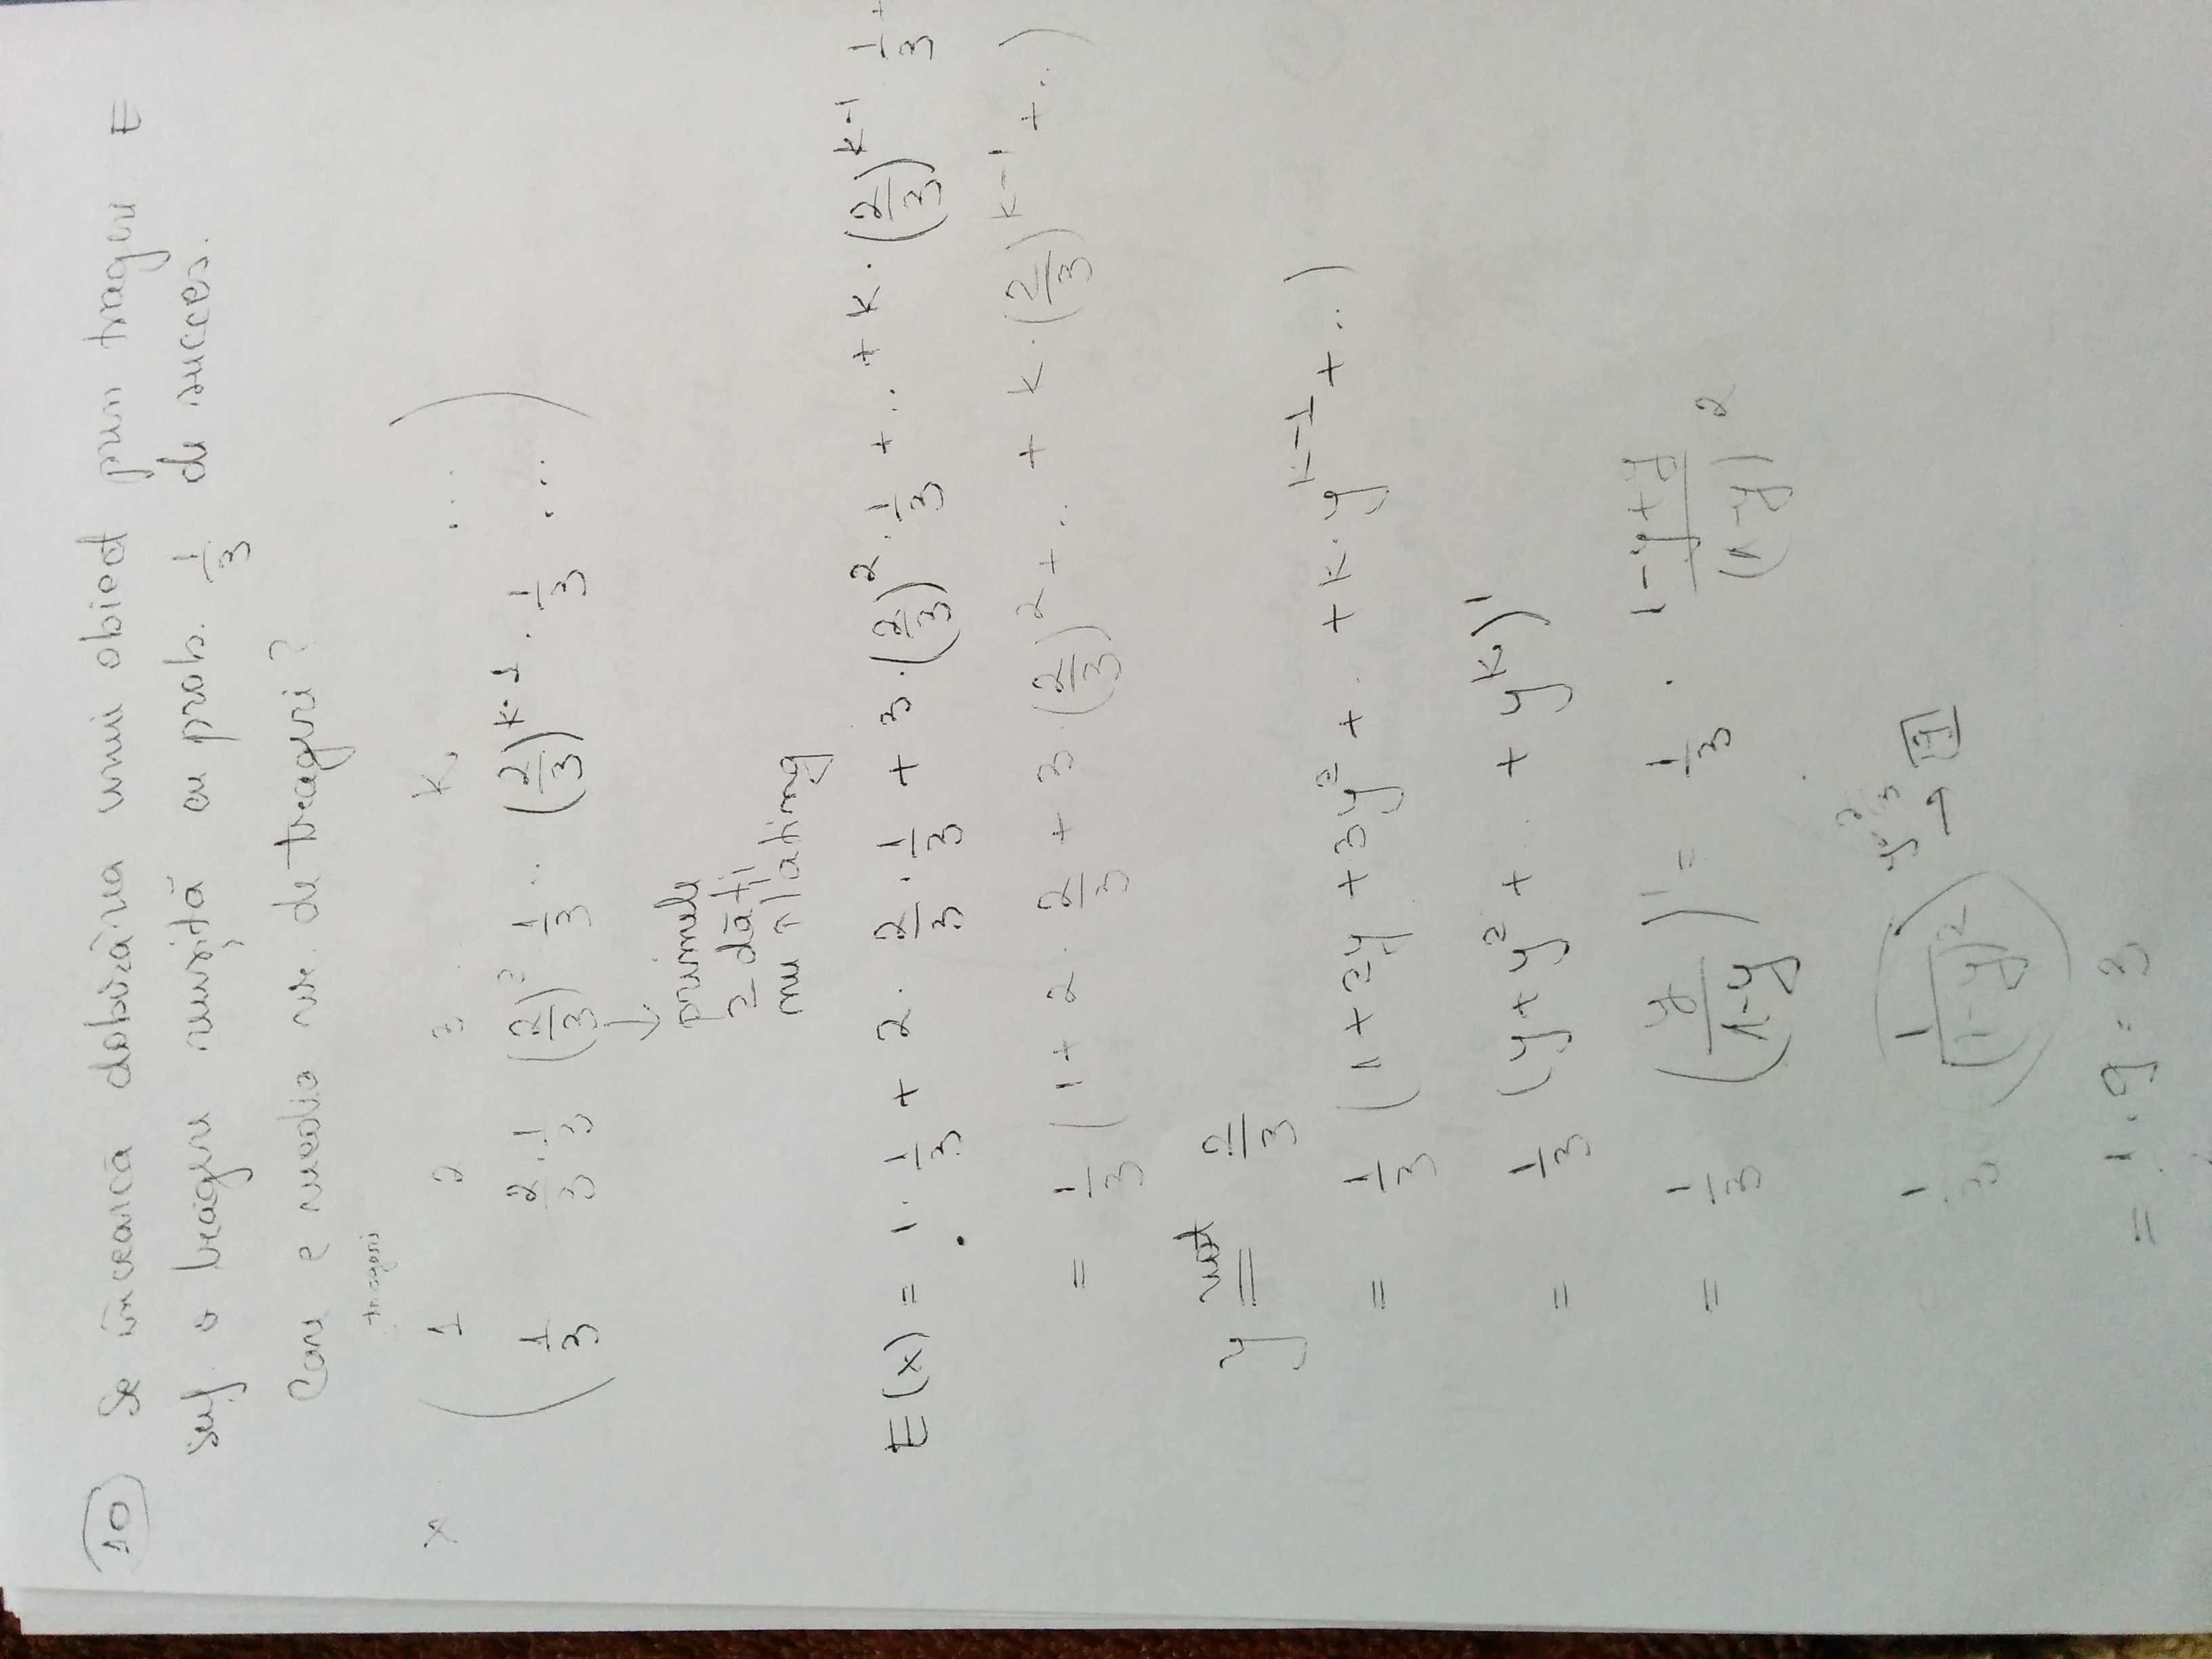 10 Se încearcă doborârea unui obiect prin trageri E
suf o tragere reușită cu prob. 1/3 de succes.
Care e media nr. de trageri?
trageri
X ( 1 2 3 k ...
1/3 2/3 · 1/3 (2/3)^2 1/3 .. (2/3)^(k-1) · 1/3 ... )
↓
primele
2 dăți
nu îl ating
E(x) = 1 · 1/3 + 2 · 2/3 · 1/3 + 3 · (2/3)^2 · 1/3 + .. + k · (2/3)^(k-1) 1/3 +
= 1/3 ( 1 + 2 · 2/3 + 3 · (2/3)^2 + .. + k · (2/3)^(k-1) + .. )
y not = 2/3
= 1/3 ( 1 + 2y + 3y^2 + .. + k · y^(k-1) + .. )
= 1/3 ( y + y^2 + .. + y^k )'
= 1/3 ( y/(1-y) )' = 1/3 · (1-y+y)/(1-y)^2
1/3 ( 1/(1-y)^2 ) y=2/3 → 9
= 1 · 9 = 3